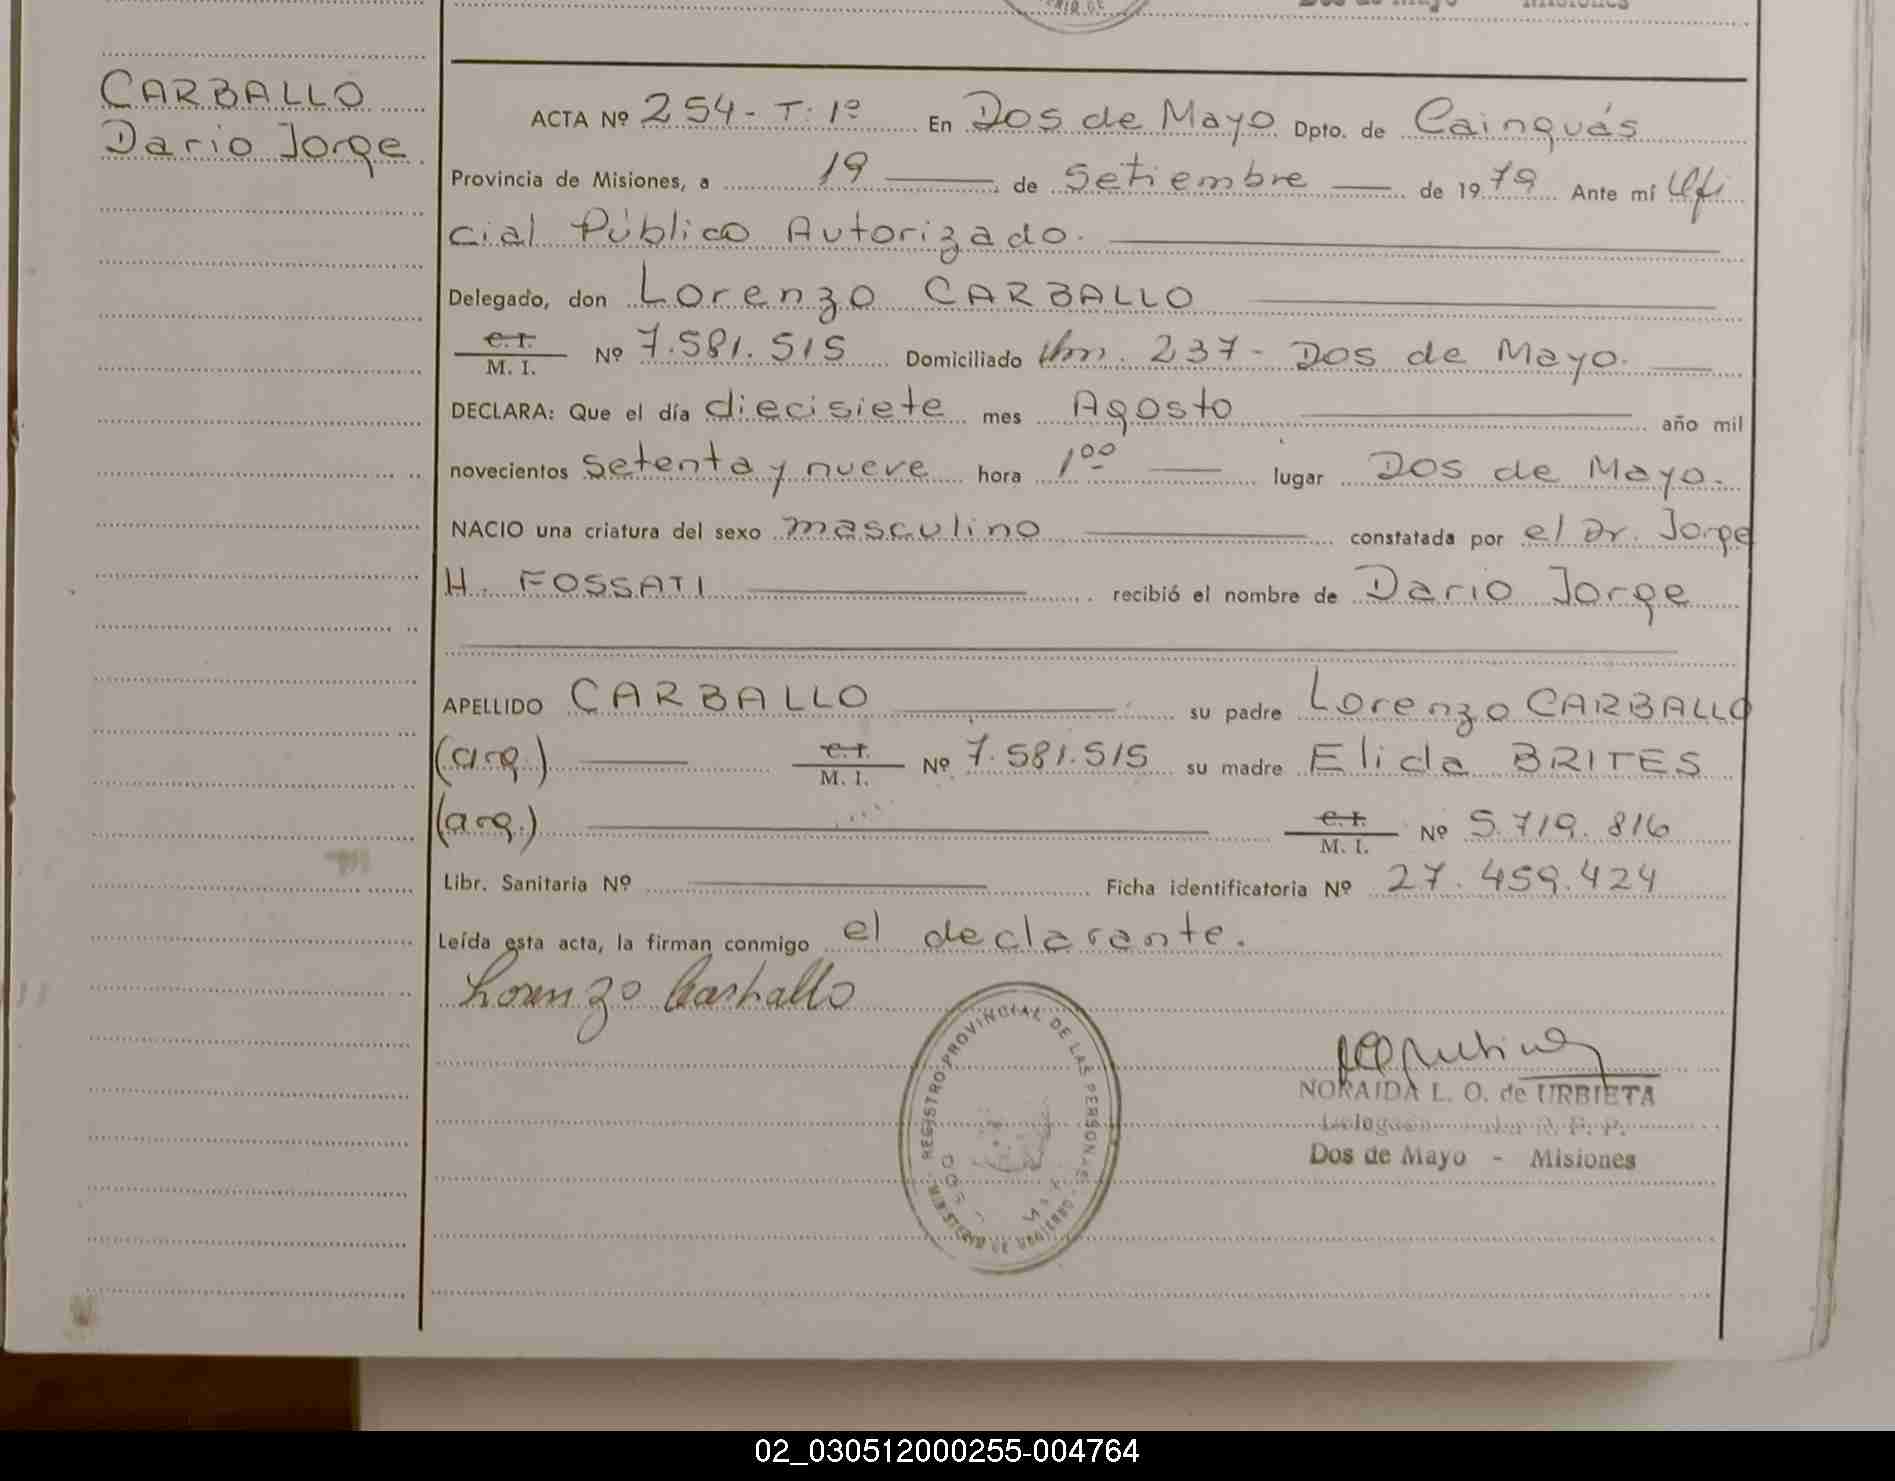 CARBALLO
Dario Jorge
ACTA Nº 254 - T. 1º En Dos de Mayo Dpto. de Cainguás
Provincia de Misiones, a 19 de Setiembre de 1979 Ante mí Ofi
cial Público Autorizado.
Delegado, don Lorenzo CARBALLO
C.I.
M. I. Nº 7.581.515 Domiciliado Km. 237 - Dos de Mayo.
DECLARA: Que el día diecisiete mes Agosto año mil
novecientos setenta y nueve hora 1⁰⁰ lugar Dos de Mayo.
NACIO una criatura del sexo masculino constatada por el Dr. Jorge
H. FOSSATI recibió el nombre de Dario Jorge
APELLIDO CARBALLO su padre Lorenzo CARBALLO
(arg.) C.I.
M. I. Nº 7.581.515 su madre Elida BRITES
(arg.) C.I.
M. I. Nº 5.719.816
Libr. Sanitaria Nº Ficha identificatoria Nº 27.459.424
Leída esta acta, la firman conmigo el declarante.
Lorenzo Carballo
REGISTRO PROVINCIAL DE LAS PERSONAS
MINISTERIO DE GOBIERNO
NORAIDA L. O. de URBIETA
R. P. P.
Dos de Mayo - Misiones
02_030512000255-004764